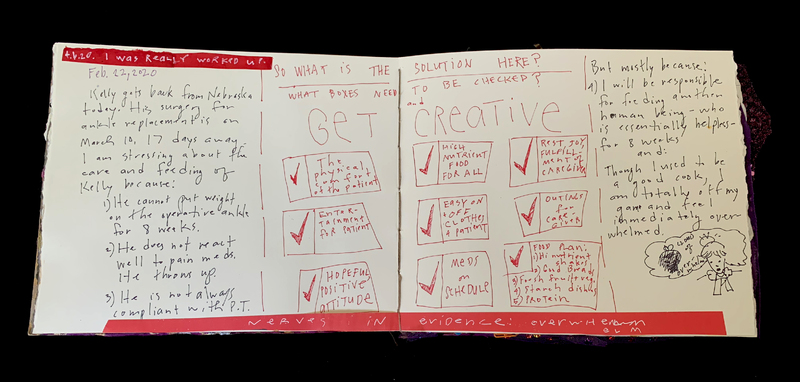 4.6.20. I was really worked up.
Feb. 22, 2020
Kelly gets back from Nebraska
today. His surgery for
ankle replacement is on
March 10, 17 days away.
I am stressing about the
care and feeding of
Kelly because:
1) He cannot put weight
on the operative ankle
for 8 weeks.
2) He does not react
well to pain meds.
He throws up.
3) He is not always
compliant with P.T.
SO WHAT IS THE SOLUTION HERE?
WHAT BOXES NEED TO BE CHECKED?
and
GET CREATIVE
The
physical
comfort
of the patient
ENTER-
TAINMENT
FOR PATIENT
HOPEFUL
POSITIVE
ATTITUDE
HIGH
NUTRIENT
FOOD
FOR ALL
EASY ON
+ OFF
CLOTHES
4 PATIENT
MEDS
on
SCHEDULE
REST, JOY,
FULFILL-
MENT OF
CAREGIVER
OUTINGS
for
CARE-
GIVER
FOOD PLAN:
1) Hi nutrient
shakes
2) Good Breads
3) Fresh fruit+veg
4) Starch dishes
5) PROTEIN
But mostly because:
4) I will be responsible
for feeding another
human being - who
is essentially helpless -
for 8 weeks
and:
Though I used to be
a good cook, I
am totally off my
game and feel
immediately over-
whelmed.
CLOUD OF
NERVES IN EVIDENCE: OVERWHELM